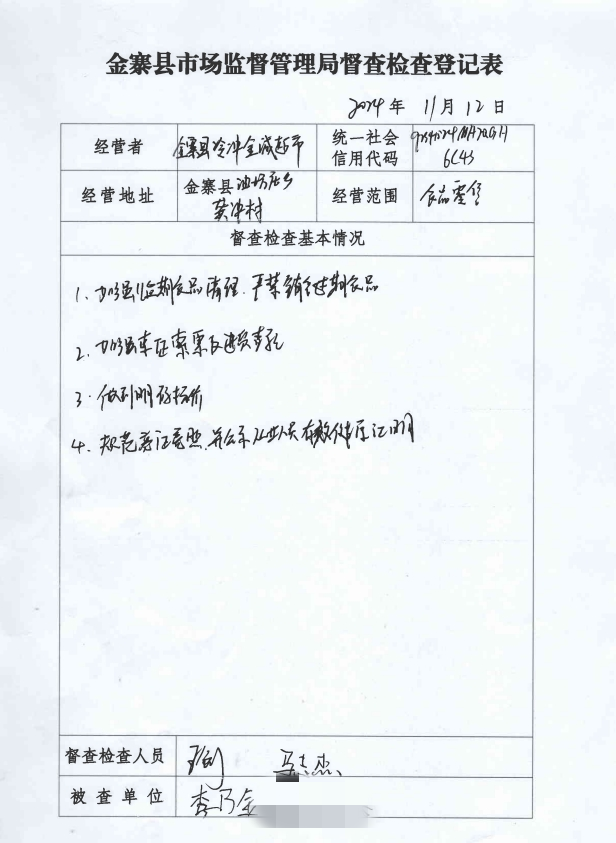 金寨县市场监督管理局督查检查登记表
2024年 11月12日
经营者 金寨县冷冲金诚超市 统一社会信用代码
6C43
经营地址 金寨县油坊店乡 经营范围 食品零售
村
督查检查基本情况
1、加强临期食品清理,严禁销售过期食品
2、加强索证索票及进货查验
3、做到明码标价
4、规范亮证亮照,并公示从业人员有效健康证明
督查检查人员
被查单位 李乃金